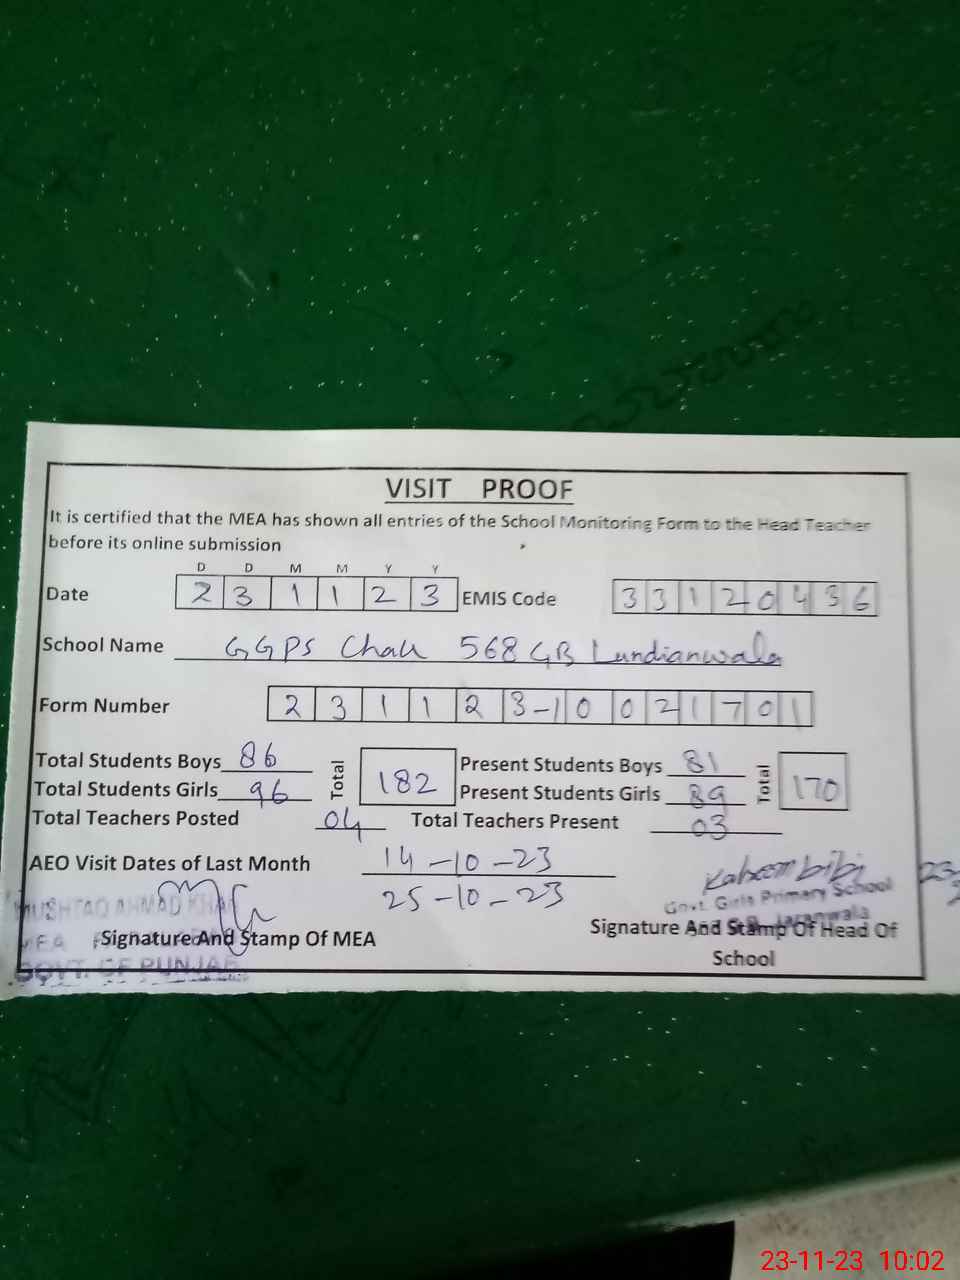 VISIT PROOF
It is certified that the MEA has shown all entries of the School Monitoring Form to the Head Teacher
before its online submission
D D M M Y Y
Date 2 3 1 1 2 3 EMIS Code 3 3 1 2 0 4 3 6
School Name GGPS Chak 568 GB Lundianwala
Form Number 2 3 1 1 2 3-1 0 0 2 1 7 0 1
Total Students Boys 86 Total 182 Present Students Boys 81 Total 170
Total Students Girls 96 Present Students Girls 89
Total Teachers Posted 04 Total Teachers Present 03
AEO Visit Dates of Last Month 14-10-23
25-10-23
MUSHTAQ AHMAD KHAN
Govt. Girls Primary School
Jaranwala
MEA
Signature And Stamp Of MEA
Signature And Stamp Of Head Of
School
GOVT. OF PUNJAB
23-11-23 10:02